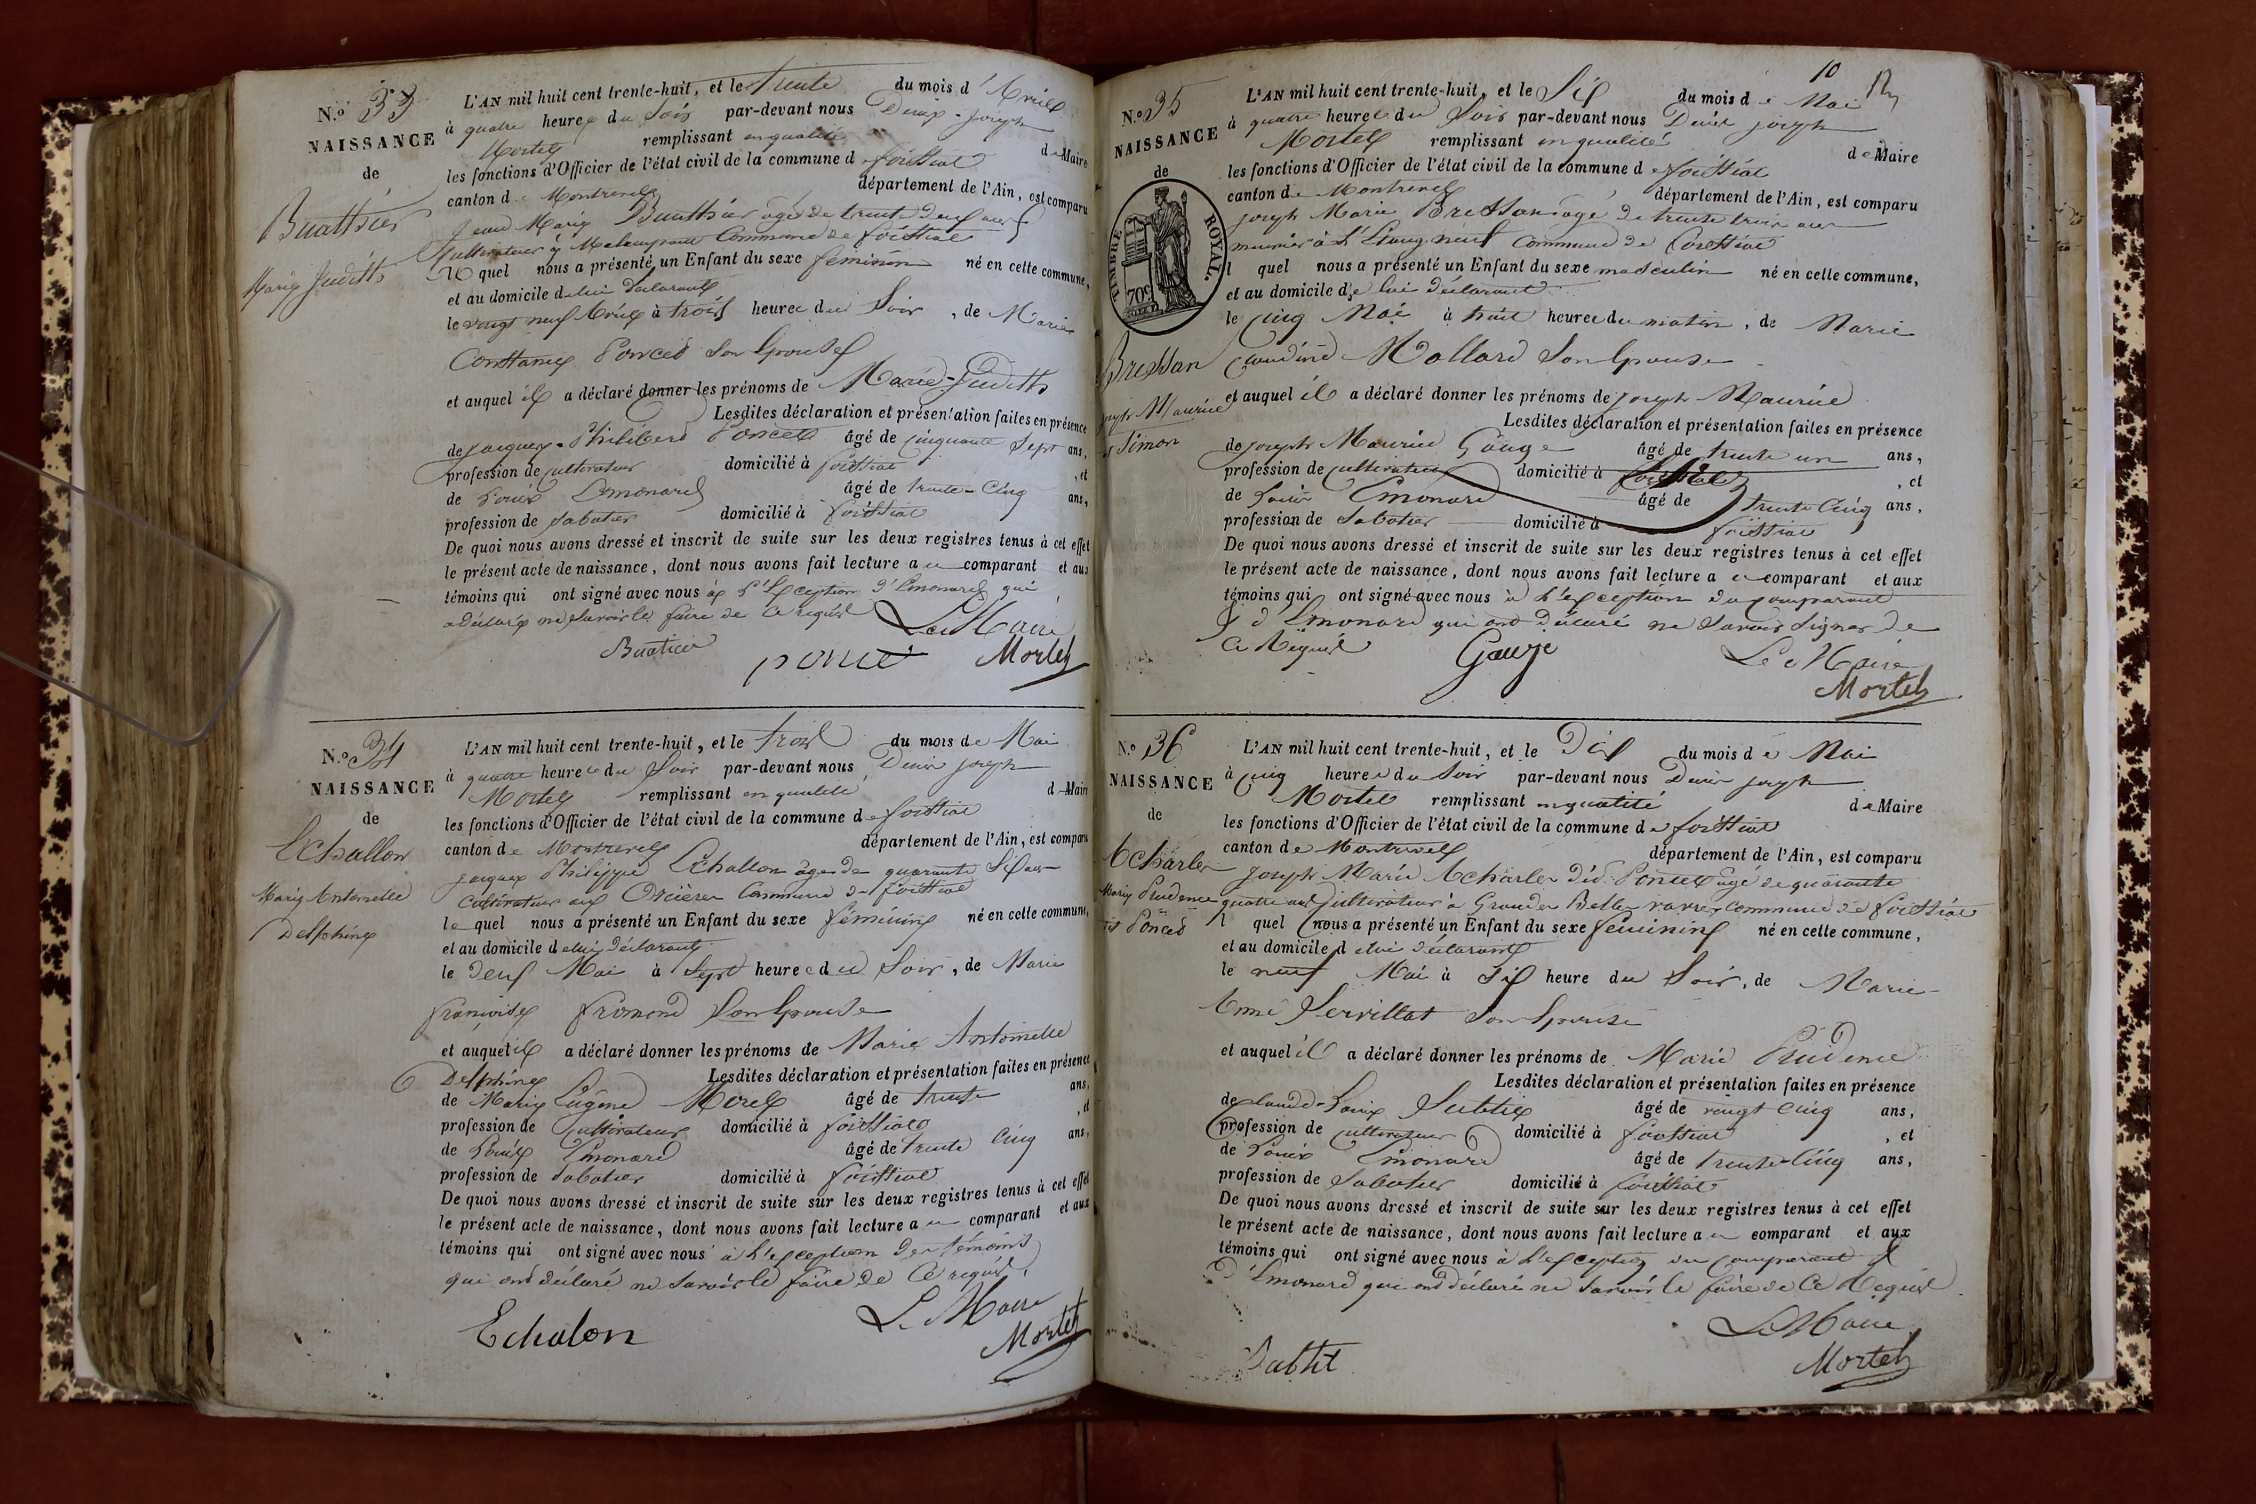 N.° 33
NAISSANCE
de
Buathier
Marie Judith
L'AN mil huit cent trente-huit, et le trente du mois d'Avril
à quatre heures du Soir par-devant nous Denis-Joseph
Mortel remplissant en qualité de Maire
les fonctions d'Officier de l'état civil de la commune de foissiat
canton de Montrevel département de l'Ain, est comparu
Jean Marie Buathier âgé de trente deux ans
Cultivateur à Commune de foissiat
lequel nous a présenté un Enfant du sexe féminin né en cette commune,
et au domicile de lui déclarant
le vingt neuf Avril à trois heures du Soir, de Marie
Constance Poncet Son Epouse
et auquel il a déclaré donner les prénoms de Marie-Judith
Lesdites déclaration et présentation faites en présence
de Jacques-Philibert Poncet âgé de cinquante Sept ans,
profession de cultivateur domicilié à foissiat, et
de Louis Emonard âgé de trente-Cinq ans,
profession de Sabotier domicilié à foissiat
De quoi nous avons dressé et inscrit de suite sur les deux registres tenus à cet effet
le présent acte de naissance, dont nous avons fait lecture au comparant et aux
témoins qui ont signé avec nous à l'Exception d'Emonard qui
a déclaré ne Savoir le faire de Ce requis
Le Maire
Buatier poncet Mortel
N.° 34
NAISSANCE
de
Echallon
Marie Antoinette
Delphine
L'AN mil huit cent trente-huit, et le trois du mois de Mai
à quatre heures du Soir par-devant nous Denis Joseph
Mortel remplissant en qualité de Maire
les fonctions d'Officier de l'état civil de la commune de foissiat
canton de Montrevel département de l'Ain, est comparu
Jacques Philippe Echallon âgé de quarante Six ans
Cultivateur aux Orcières Commune de foissiat
lequel nous a présenté un Enfant du sexe féminin né en cette commune,
et au domicile de lui déclarant
le deux Mai à Sept heures du Soir, de Marie
françoise fromond Son Epouse
et auquel il a déclaré donner les prénoms de Marie Antoinette
Delphine Lesdites déclaration et présentation faites en présence
de Marie Eugène Morel âgé de trente ans,
profession de Cultivateur domicilié à foissiat, et
de Louis Emonard âgé de trente Cinq ans,
profession de Sabotier domicilié à foissiat
De quoi nous avons dressé et inscrit de suite sur les deux registres tenus à cet effet
le présent acte de naissance, dont nous avons fait lecture au comparant et aux
témoins qui ont signé avec nous à l'exception des témoins
qui ont déclaré ne Savoir le faire de Ce requis.
Le Maire
Echalon Mortel
10
N.° 35
NAISSANCE
de
TIMBRE ROYAL.
70c
Bressan
Joseph Maurice
Simon
L'AN mil huit cent trente-huit, et le Six du mois de Mai
à quatre heures du Soir par-devant nous Denis Joseph
Mortel remplissant en qualité de Maire
les fonctions d'Officier de l'état civil de la commune de foissiat
canton de Montrevel département de l'Ain, est comparu
Joseph Marie Bressan âgé de trente trois ans
meunier à l'Etang neuf commune de foissiat
lequel nous a présenté un Enfant du sexe masculin né en cette commune,
et au domicile de lui déclarant
le Cinq Mai à huit heures du matin, de Marie
Claudine Mollard Son Epouse
et auquel il a déclaré donner les prénoms de Joseph Maurice
Lesdites déclaration et présentation faites en présence
de Joseph Maurice Gauge âgé de trente un ans,
profession de cultivateur domicilié à foissiat, et
de Louis Emonard âgé de trente Cinq ans,
profession de Sabotier domicilié à foissiat
De quoi nous avons dressé et inscrit de suite sur les deux registres tenus à cet effet
le présent acte de naissance, dont nous avons fait lecture au comparant et aux
témoins qui ont signé avec nous à l'exception du comparant
& d'Emonard qui ont déclaré ne Savoir Signer de
Ce Requis Gauge Le Maire
Mortel
N.° 36
NAISSANCE
de
Acharles
Marie Prudence
dit Poncet
L'AN mil huit cent trente-huit, et le Dix du mois de Mai
à Cinq heures du Soir par-devant nous Denis Joseph
Mortel remplissant en qualité de Maire
les fonctions d'Officier de l'état civil de la commune de foissiat
canton de Montrevel département de l'Ain, est comparu
Joseph Marie Acharles dit Poncet âgé de quarante
quatre ans Cultivateur à commune de foissiat
lequel nous a présenté un Enfant du sexe féminin né en cette commune,
et au domicile de lui déclarant
le neuf Mai à Six heure du Soir, de Marie
Anne Servillat Son Epouse
et auquel il a déclaré donner les prénoms de Marie Prudence
Lesdites déclaration et présentation faites en présence
de Claude-Louis âgé de vingt cinq ans,
profession de Cultivateur domicilié à foissiat, et
de Louis Emonard âgé de trente-Cinq ans,
profession de Sabotier domicilié à foissiat
De quoi nous avons dressé et inscrit de suite sur les deux registres tenus à cet effet
le présent acte de naissance, dont nous avons fait lecture au comparant et aux
témoins qui ont signé avec nous à l'exception du comparant &
d'Emonard qui ont déclaré ne Savoir le faire de Ce Requis
Le Maire
Mortel